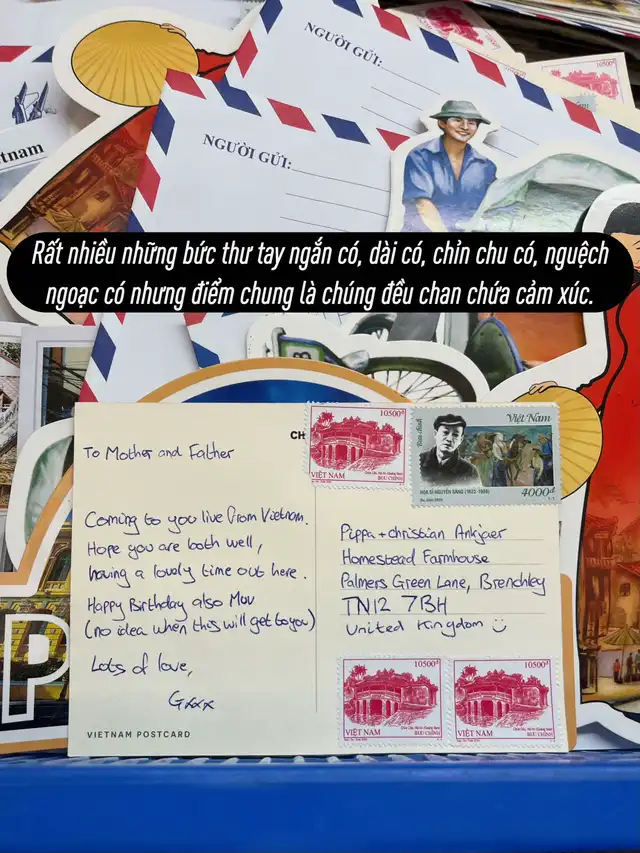 10500đ
NGƯỜI GỬI:
NGƯỜI GỬI:
tnam
Rất nhiều những bức thư tay ngắn có, dài có, chỉn chu có, nguệch
ngoạc có nhưng điểm chung là chúng đều chan chứa cảm xúc.
CH
10500đ
VIỆT NAM
BƯU CHÍNH
Việt Nam
HỌA SĨ NGUYỄN SÁNG (1923-1988)
4000đ
To Mother and Father
Coming to you live from Vietnam.
Hope you are both well,
having a lovely time out here.
Happy Birthday also Muv
(no idea when this will get to you)
Lots of love,
Gxxx
Pippa + Christian Ankjaer
Homestead Farmhouse
Palmers Green Lane, Brenchley
TN12 7BH
United Kingdom
10500đ
VIỆT NAM
BƯU CHÍNH
10500đ
VIỆT NAM
BƯU CHÍNH
P
VIETNAM POSTCARD